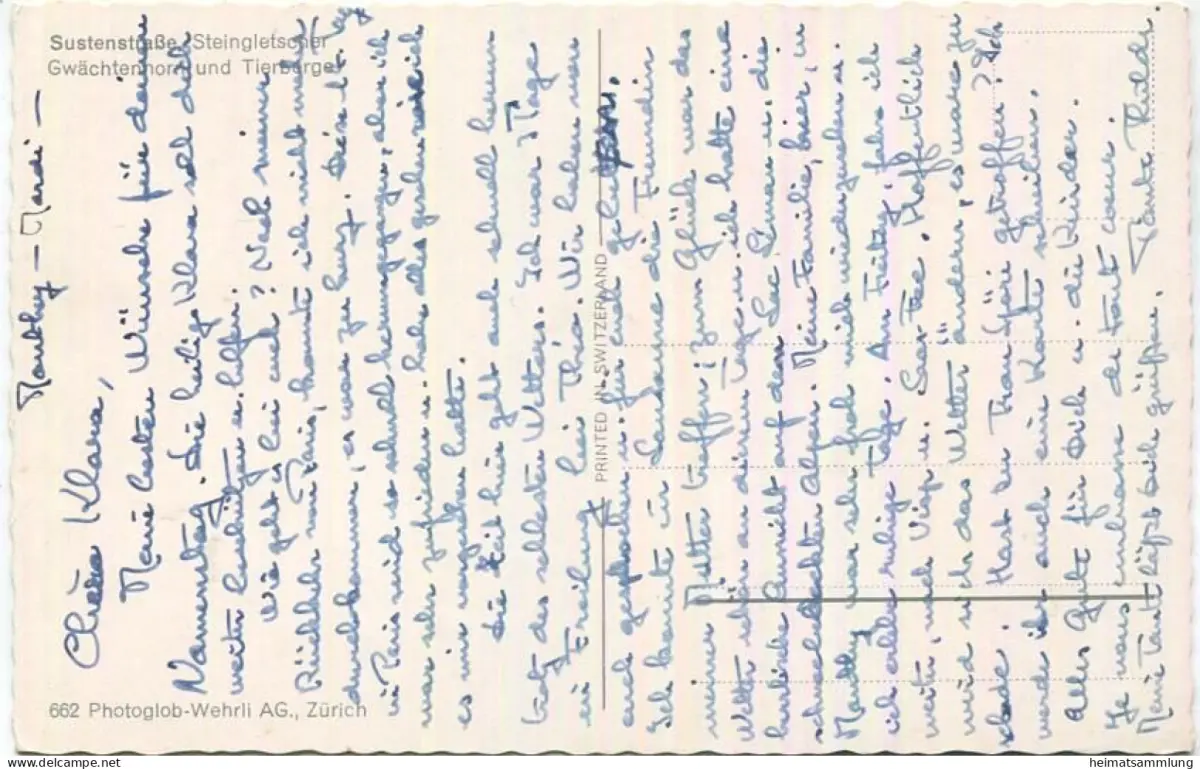 Sustenstraße, Steingletscher
Gwächtenhorn und Tierberge
Marthy — Mardi —
Chère Klara,
Meine besten Wünsche für deinen
Namenstag. Die heilige Klara soll dich
weiter beschützen u. helfen.
Wie geht es bei euch? Nach meiner
Rückkehr von Paris, konnte ich nicht mehr
es war zu kurz. Die 14 Tag
in Paris sind so schnell herumgegangen, aber ich
war sehr zufrieden u. habe alles gesehen was ich
es mir vorgesehen hatte.
Die Zeit hier geht auch schnell herum
trotz des schlechten Wetters. Ich war 3 Tage
in Freiburg bei Thea. Wir haben von
euch gesprochen u. für euch gebetet.
Ich konnte in Lausanne die Freundin
meiner Mutter treffen; zum Glück war das
Wetter schön an diesem Tage u. ich hatte eine
herrliche Aussicht auf den Lac Léman u. die
schneebedeckten Alpen. Meine Familie, hier, in
Marthy war sehr froh mich wiederzusehen u.
ich erlebe ruhige Tage. Am Freitag fahre ich
weiter, nach Visp u. Saas-Fee. Hoffentlich
wird sich das Wetter ändern, es wäre zu
schade. Hast du Frau getroffen? Ich
werde ihr auch eine Karte schreiben.
Alles Gute für Dich u. die Kinder.
Je vous embrasse de tout cœur.
Meine Tante läßt dich grüßen. Tante Thilde.
PRINTED IN SWITZERLAND
662 Photoglob-Wehrli AG., Zürich
www.delcampe.net
heimatsammlung